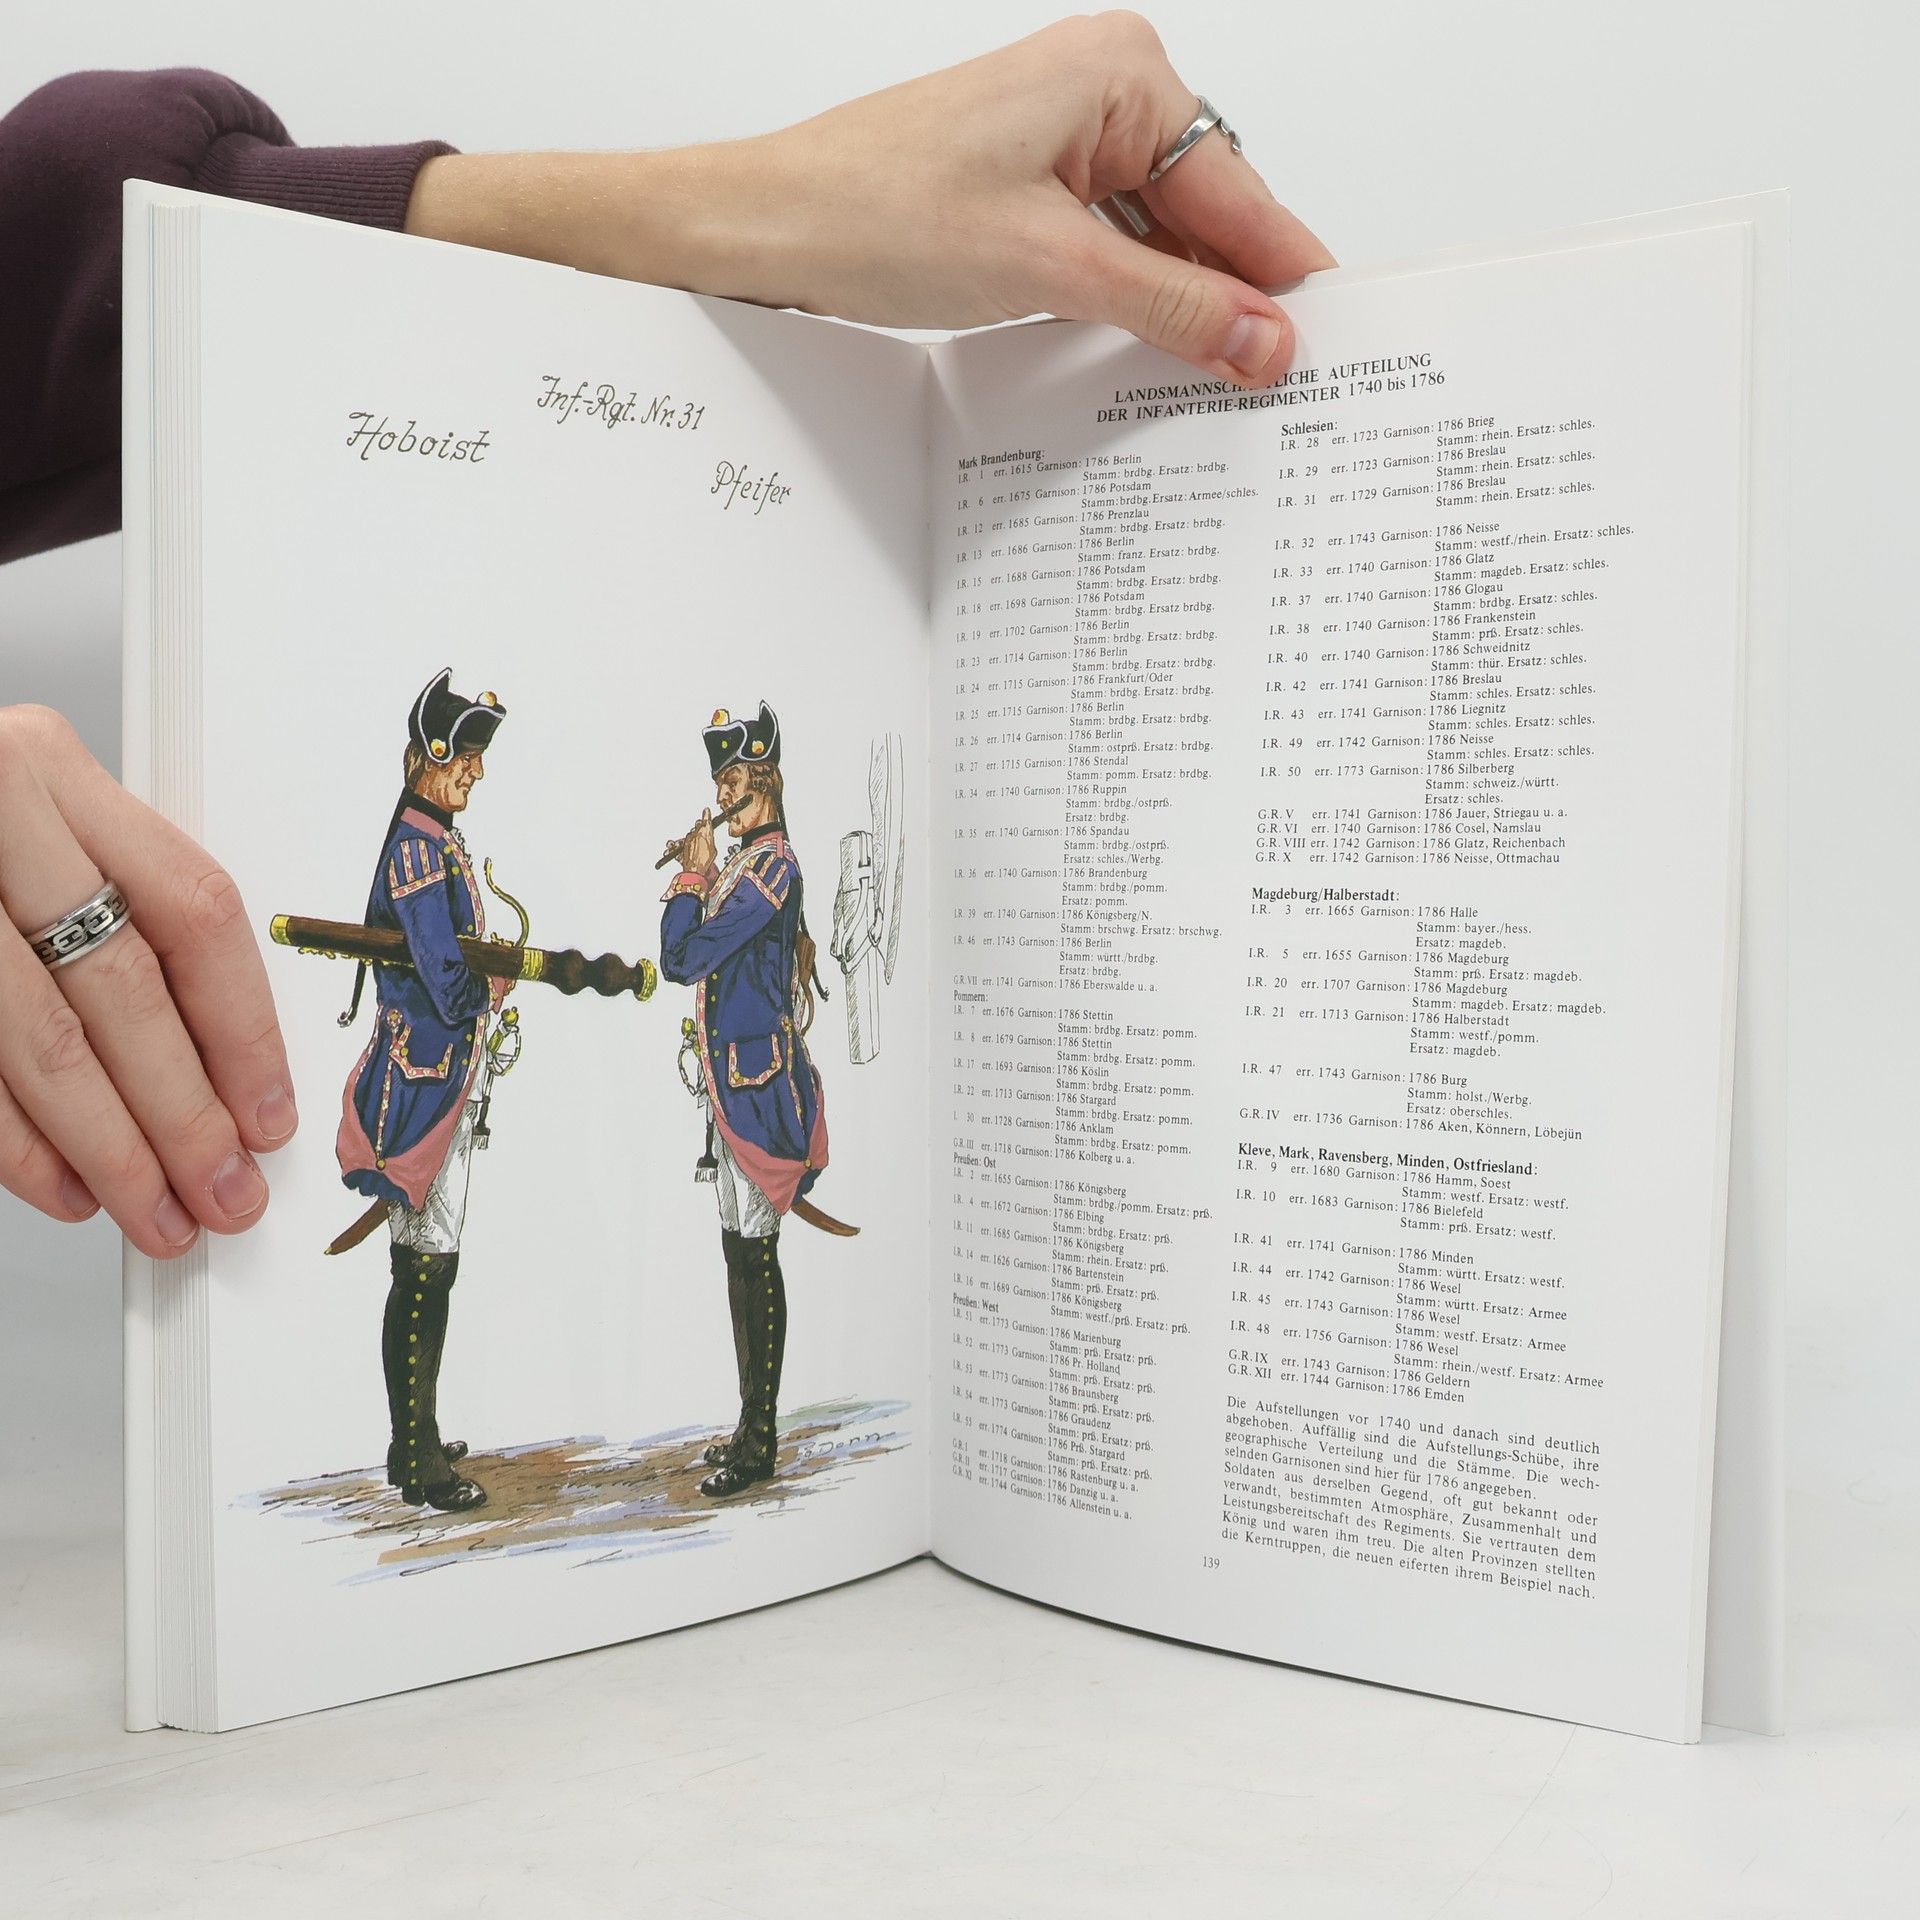 Inf.-Rgt. Nr. 31
Hoboist
Pfeifer
G Dorn
LANDSMANNSCHA LICHE AUFTEILUNG
DER INFANTERIE-REGIMENTER 1740 bis 1786
Mark Brandenburg:
I.R. 1 err. 1615 Garnison: 1786 Berlin
Stamm: brdbg. Ersatz: brdbg.
I.R. 6 err. 1675 Garnison: 1786 Potsdam
Stamm: brdbg. Ersatz: Armee/schles.
I.R. 12 err. 1685 Garnison: 1786 Prenzlau
Stamm: brdbg. Ersatz: brdbg.
I.R. 13 err. 1686 Garnison: 1786 Berlin
Stamm: franz. Ersatz: brdbg.
I.R. 15 err. 1688 Garnison: 1786 Potsdam
Stamm: brdbg. Ersatz: brdbg.
I.R. 18 err. 1698 Garnison: 1786 Potsdam
Stamm: brdbg. Ersatz brdbg.
I.R. 19 err. 1702 Garnison: 1786 Berlin
Stamm: brdbg. Ersatz: brdbg.
I.R. 23 err. 1714 Garnison: 1786 Berlin
Stamm: brdbg. Ersatz: brdbg.
I.R. 24 err. 1715 Garnison: 1786 Frankfurt/Oder
Stamm: brdbg. Ersatz: brdbg.
I.R. 25 err. 1715 Garnison: 1786 Berlin
Stamm: brdbg. Ersatz: brdbg.
I.R. 26 err. 1714 Garnison: 1786 Berlin
Stamm: ostprß. Ersatz: brdbg.
I.R. 27 err. 1715 Garnison: 1786 Stendal
Stamm: pomm. Ersatz: brdbg.
I.R. 34 err. 1740 Garnison: 1786 Ruppin
Stamm: brdbg./ostprß.
Ersatz: brdbg.
I.R. 35 err. 1740 Garnison: 1786 Spandau
Stamm: brdbg./ostprß.
Ersatz: schles./Werbg.
I.R. 36 err. 1740 Garnison: 1786 Brandenburg
Stamm: brdbg./pomm.
Ersatz: pomm.
I.R. 39 err. 1740 Garnison: 1786 Königsberg/N.
Stamm: brschwg. Ersatz: brschwg.
I.R. 46 err. 1743 Garnison: 1786 Berlin
Stamm: württ./brdbg.
Ersatz: brdbg.
G.R. VII err. 1741 Garnison: 1786 Eberswalde u. a.
Pommern:
I.R. 7 err. 1676 Garnison: 1786 Stettin
Stamm: brdbg. Ersatz: pomm.
I.R. 8 err. 1679 Garnison: 1786 Stettin
Stamm: brdbg. Ersatz: pomm.
I.R. 17 err. 1693 Garnison: 1786 Köslin
Stamm: brdbg. Ersatz: pomm.
I.R. 22 err. 1713 Garnison: 1786 Stargard
Stamm: brdbg. Ersatz: pomm.
I. 30 err. 1728 Garnison: 1786 Anklam
Stamm: brdbg. Ersatz: pomm.
G.R. III err. 1718 Garnison: 1786 Kolberg u. a.
Preußen: Ost
I.R. 2 err. 1655 Garnison: 1786 Königsberg
Stamm: brdbg./pomm. Ersatz: prß.
I.R. 4 err. 1672 Garnison: 1786 Elbing
Stamm: brdbg. Ersatz: prß.
I.R. 11 err. 1685 Garnison: 1786 Königsberg
Stamm: rhein. Ersatz: prß.
I.R. 14 err. 1626 Garnison: 1786 Bartenstein
Stamm: prß. Ersatz: prß.
I.R. 16 err. 1689 Garnison: 1786 Königsberg
Stamm: westf./prß. Ersatz: prß.
Preußen: West
I.R. 51 err. 1773 Garnison: 1786 Marienburg
Stamm: prß. Ersatz: prß.
I.R. 52 err. 1773 Garnison: 1786 Pr. Holland
Stamm: prß. Ersatz: prß.
I.R. 53 err. 1773 Garnison: 1786 Braunsberg
Stamm: prß. Ersatz: prß.
I.R. 54 err. 1773 Garnison: 1786 Graudenz
Stamm: prß. Ersatz: prß.
I.R. 55 err. 1774 Garnison: 1786 Prß. Stargard
Stamm: prß. Ersatz: prß.
G.R. I err. 1718 Garnison: 1786 Rastenburg u. a.
G.R. II err. 1717 Garnison: 1786 Danzig u. a.
G.R. XI err. 1744 Garnison: 1786 Allenstein u. a.
Schlesien:
I.R. 28 err. 1723 Garnison: 1786 Brieg
Stamm: rhein. Ersatz: schles.
I.R. 29 err. 1723 Garnison: 1786 Breslau
Stamm: rhein. Ersatz: schles.
I.R. 31 err. 1729 Garnison: 1786 Breslau
Stamm: rhein. Ersatz: schles.
I.R. 32 err. 1743 Garnison: 1786 Neisse
Stamm: westf./rhein. Ersatz: schles.
I.R. 33 err. 1740 Garnison: 1786 Glatz
Stamm: magdeb. Ersatz: schles.
I.R. 37 err. 1740 Garnison: 1786 Glogau
Stamm: brdbg. Ersatz: schles.
I.R. 38 err. 1740 Garnison: 1786 Frankenstein
Stamm: prß. Ersatz: schles.
I.R. 40 err. 1740 Garnison: 1786 Schweidnitz
Stamm: thür. Ersatz: schles.
I.R. 42 err. 1741 Garnison: 1786 Breslau
Stamm: schles. Ersatz: schles.
I.R. 43 err. 1741 Garnison: 1786 Liegnitz
Stamm: schles. Ersatz: schles.
I.R. 49 err. 1742 Garnison: 1786 Neisse
Stamm: schles. Ersatz: schles.
I.R. 50 err. 1773 Garnison: 1786 Silberberg
Stamm: schweiz./württ.
Ersatz: schles.
G.R. V err. 1741 Garnison: 1786 Jauer, Striegau u. a.
G.R. VI err. 1740 Garnison: 1786 Cosel, Namslau
G.R. VIII err. 1742 Garnison: 1786 Glatz, Reichenbach
G.R. X err. 1742 Garnison: 1786 Neisse, Ottmachau
Magdeburg/Halberstadt:
I.R. 3 err. 1665 Garnison: 1786 Halle
Stamm: bayer./hess.
Ersatz: magdeb.
I.R. 5 err. 1655 Garnison: 1786 Magdeburg
Stamm: prß. Ersatz: magdeb.
I.R. 20 err. 1707 Garnison: 1786 Magdeburg
Stamm: magdeb. Ersatz: magdeb.
I.R. 21 err. 1713 Garnison: 1786 Halberstadt
Stamm: westf./pomm.
Ersatz: magdeb.
I.R. 47 err. 1743 Garnison: 1786 Burg
Stamm: holst./Werbg.
Ersatz: oberschles.
G.R. IV err. 1736 Garnison: 1786 Aken, Könnern, Löbejün
Kleve, Mark, Ravensberg, Minden, Ostfriesland:
I.R. 9 err. 1680 Garnison: 1786 Hamm, Soest
Stamm: westf. Ersatz: westf.
I.R. 10 err. 1683 Garnison: 1786 Bielefeld
Stamm: prß. Ersatz: westf.
I.R. 41 err. 1741 Garnison: 1786 Minden
Stamm: württ. Ersatz: westf.
I.R. 44 err. 1742 Garnison: 1786 Wesel
Stamm: württ. Ersatz: Armee
I.R. 45 err. 1743 Garnison: 1786 Wesel
Stamm: westf. Ersatz: Armee
I.R. 48 err. 1756 Garnison: 1786 Wesel
Stamm: rhein./westf. Ersatz: Armee
G.R. IX err. 1743 Garnison: 1786 Geldern
G.R. XII err. 1744 Garnison: 1786 Emden
Die Aufstellungen vor 1740 und danach sind deutlich
abgehoben. Auffällig sind die Aufstellungs-Schübe, ihre
geographische Verteilung und die Stämme. Die wech-
selnden Garnisonen sind hier für 1786 angegeben.
Soldaten aus derselben Gegend, oft gut bekannt oder
verwandt, bestimmten Atmosphäre, Zusammenhalt und
Leistungsbereitschaft des Regiments. Sie vertrauten dem
König und waren ihm treu. Die alten Provinzen stellten
die Kerntruppen, die neuen eiferten ihrem Beispiel nach.
139